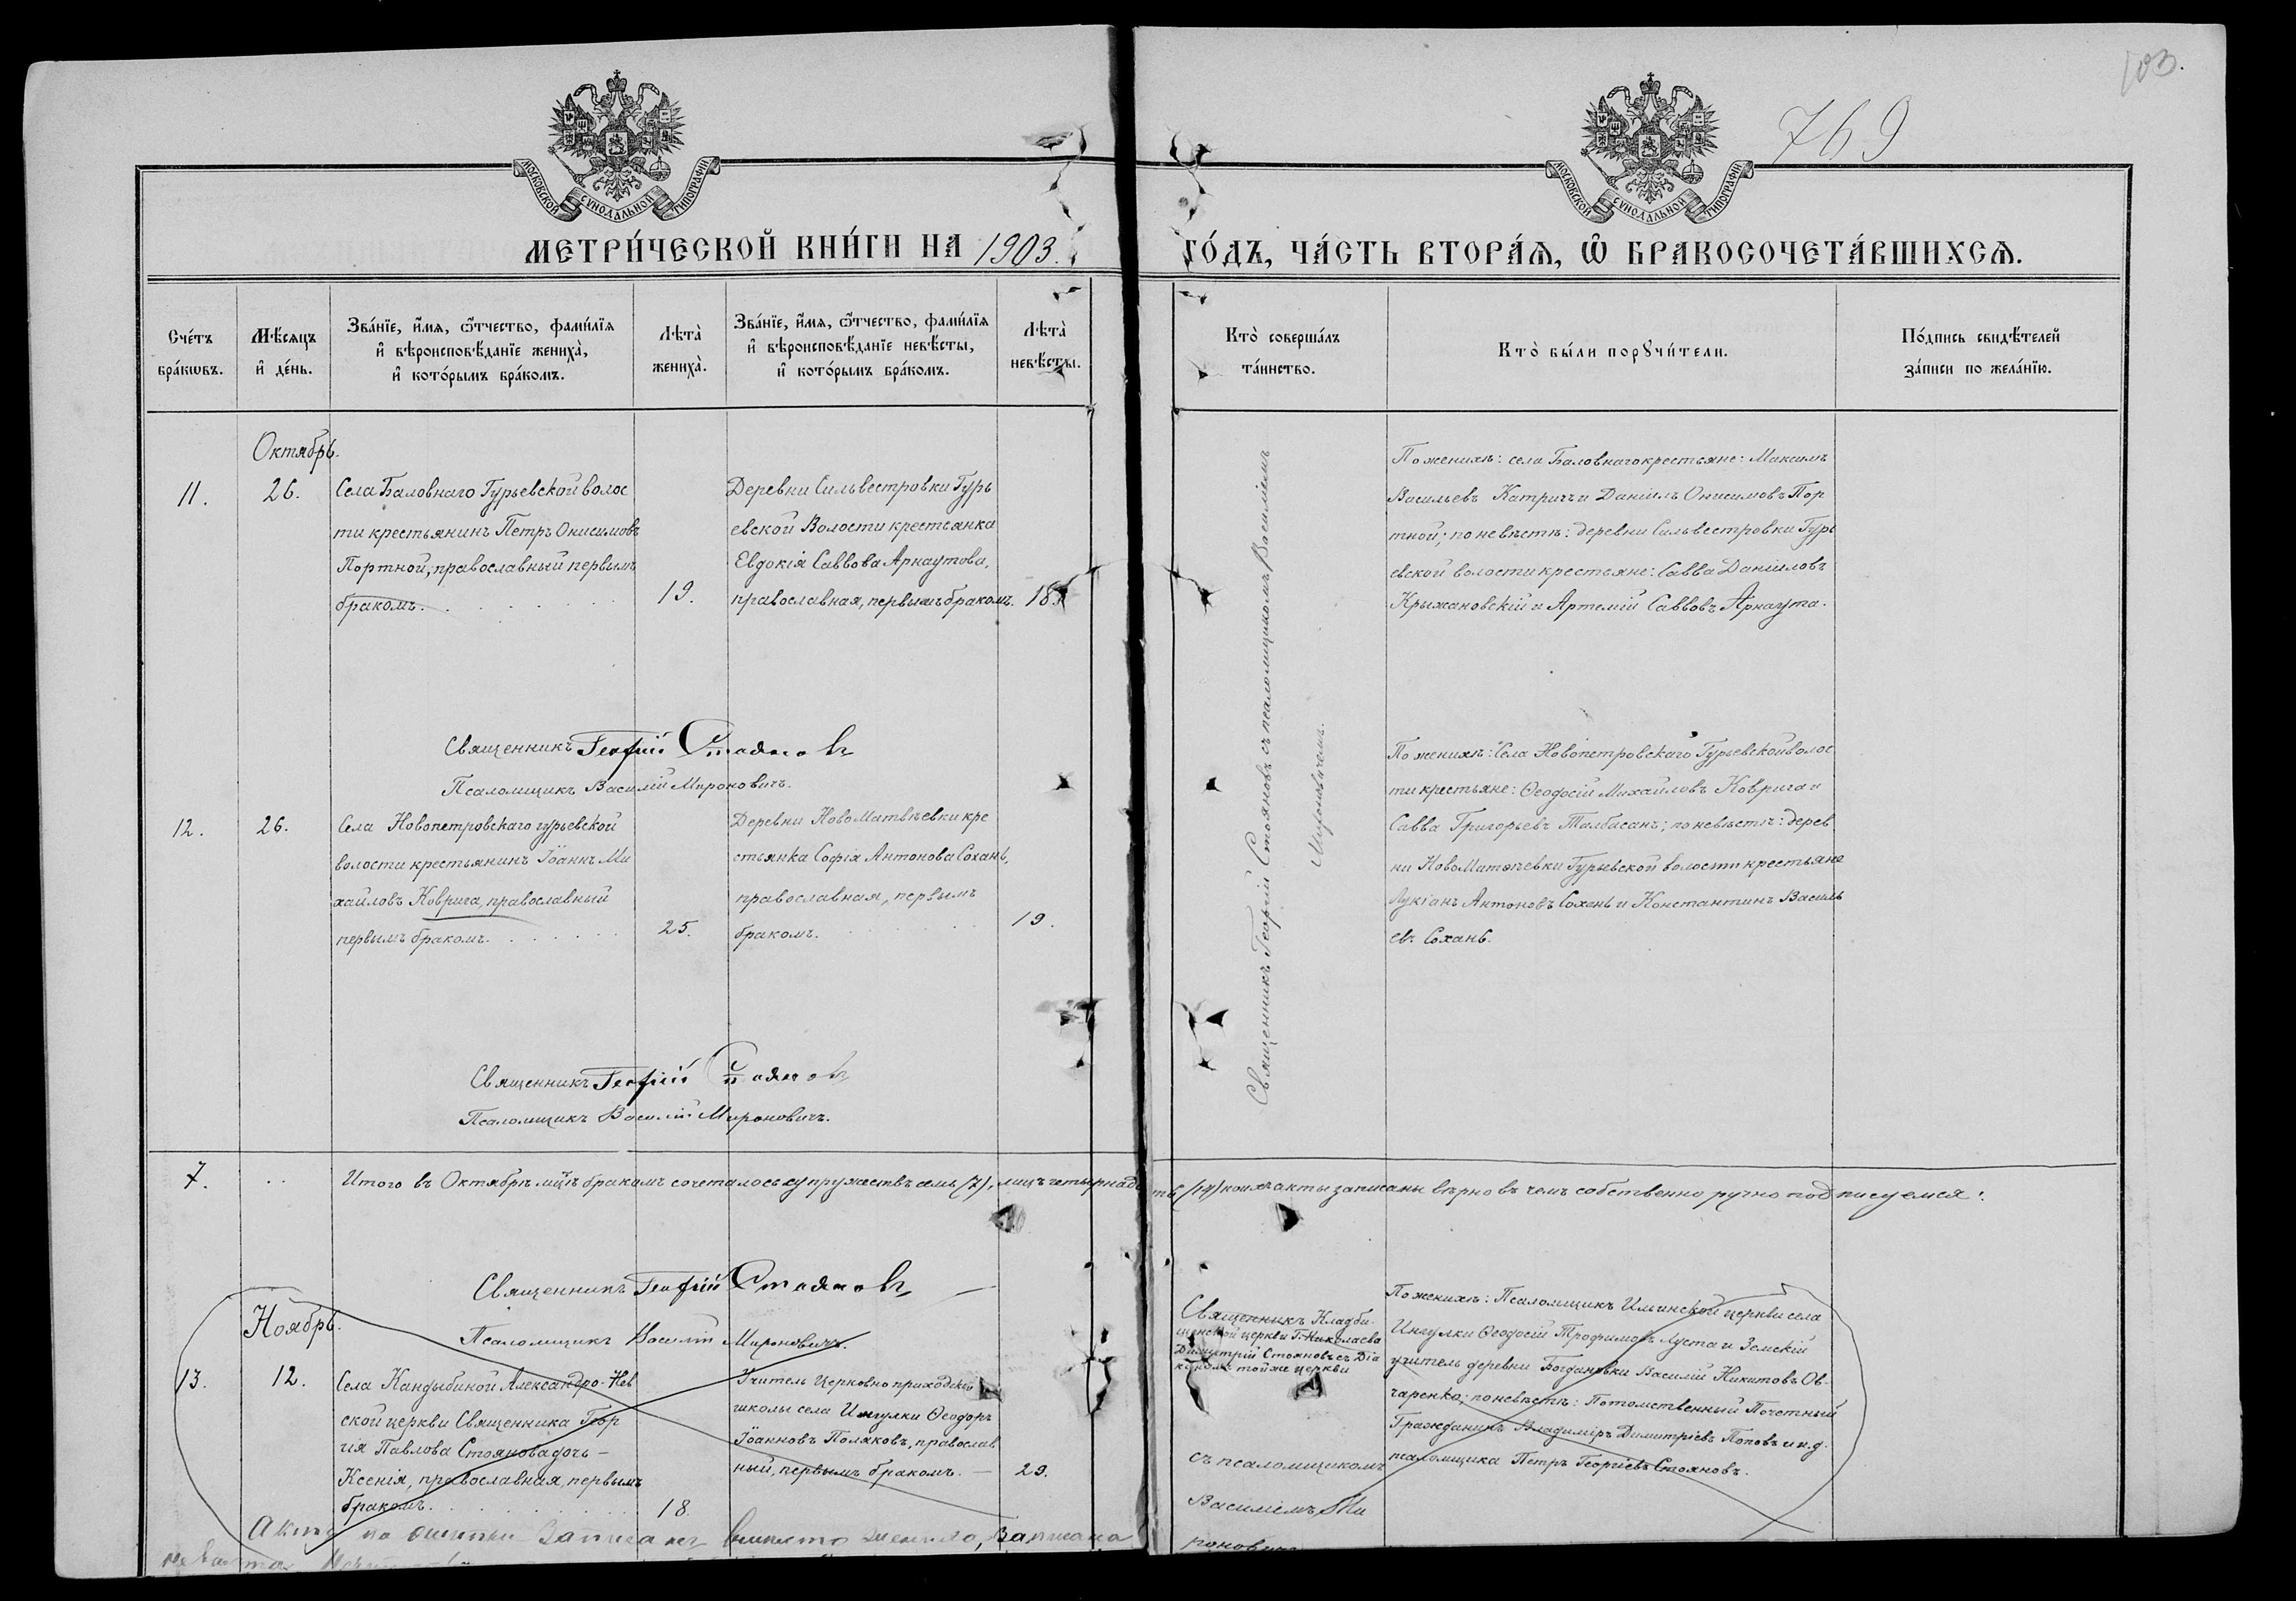 103.
769
МОСКОВСКОЙ СУНОДАЛЬНОЙ ТИПОГРАФІИ
МОСКОВСКОЙ СУНОДАЛЬНОЙ ТИПОГРАФІИ
МЕТРИ́ЧЕСКОЙ КНИ́ГИ НА 1903.
ГО́ДЪ, ЧА́СТЬ ВТОРА́Ѧ, Ѽ БРАКОСОЧЕТА́ВШИХСѦ.
Сче́тъ
бра́кѡвъ.
Мѣ́сѧцъ
и҆ де́нь.
Зва́нїе, и҆́мѧ, ѻ҆́тчество, фами́лїѧ
и҆ вѣроисповѣ́данїе жениха̀,
и҆ кото́рымъ бра́комъ.
Лѣта̀
жениха̀.
Зва́нїе, и҆́мѧ, ѻ҆́тчество, фами́лїѧ
и҆ вѣроисповѣ́данїе невѣ́сты,
и҆ кото́рымъ бра́комъ.
Лѣта̀
невѣ́сты.
Кто̀ соверша́лъ
та́инство.
Кто̀ бы́ли порꙋчи́тели.
По́дпись свидѣ́телей
за́писи по жела́нїю.
Октябрь.
11.
26.
Села Баловнаго Гурьевской волос
ти крестьянинъ Петръ Онисимовъ
Портной, православный первымъ
бракомъ.
19.
Деревни Сильвестровки Гурь
евской Волости крестьянка
Евдокія Саввова Арнаутова,
православная, первымъ бракомъ.
18.
Священникъ Георгій Стояновъ съ псаломщикомъ Василіемъ
Мироновичемъ.
По женихѣ: села Баловнаго крестьяне: Максимъ
Васильевъ Катричъ и Даніилъ Онисимовъ Пор
тной; по невѣстѣ: деревни Сильвестровки Гурь
евской волости крестьяне: Савва Даніиловъ
Крыжановскій и Артемій Саввовъ Арнаута.
Священникъ Георгій Стояновъ
Псаломщикъ Василій Мироновичъ.
12.
26.
Села Новопетровскаго гурьевской
волости крестьянинъ Іоаннъ Ми
хайловъ Коврига, православный
первымъ бракомъ.
25.
Деревни НовоМатвѣевки кре
стьянка Софія Антонова Сохань,
православная, первымъ
бракомъ.
19.
По женихѣ: Села Новопетровскаго Гурьевской волос
ти крестьяне: Ѳеодосій Михайловъ Коврига и
Савва Григорьевъ Талбасанъ; по невѣстѣ: дерев
ни НовоМатвѣевки Гурьевской волости крестьяне
Лукіанъ Антоновъ Сохань и Константинъ Василь
евъ Сохань.
Священникъ Георгій Стояновъ
Псаломщикъ Василій Мироновичъ.
7.
Итого въ Октябрѣ мцѣ бракомъ сочеталось супружествъ семь (7), лицъ четырнадцать (14) коихъ акты записаны вѣрно въ чемъ собственно ручно подписуемся:
Священникъ Георгій Стояновъ
Псаломщикъ Василій Мироновичъ.
Ноябрь.
13.
12.
Села Кандыбиной Александро-Нев
ской церкви Священника Геор
гія Павлова Стоянова дочь –
Ксенія, православная, первымъ
бракомъ.
18.
Учитель Церковно приходской
школы села Ингулки Ѳеодоръ
Іоанновъ Поляковъ, православ
ный, первымъ бракомъ. –
29.
Священникъ Кладби-
щенской церкви Г. Николаева
Димитрій Стояновъ съ Діа
кономъ тойже церкви
съ псаломщикомъ
Василіемъ Ми
роновичемъ
По женихѣ: Псаломщикъ Ильинской церкви села
Ингулки Ѳеодосій Трофимовъ Луста и Земскій
учитель деревни Богдановки Василій Никитовъ Ов-
чаренко; по невѣстѣ: Потомственный Почетный
Гражданинъ Владиміръ Димитріевъ Поповъ и и.д.
псаломщика Петръ Георгіевъ Стояновъ.
Актъ по ошибкѣ записанъ вмѣсто жениха, записана
невѣста